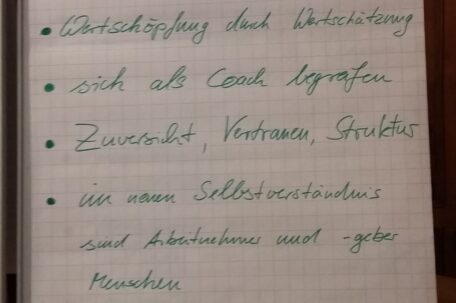 • Wertschöpfung durch Wertschätzung
• sich als Coach begreifen
• Zuversicht, Vertrauen, Struktur
• im neuen Selbstverständnis
sind Arbeitnehmer und -geber
Menschen